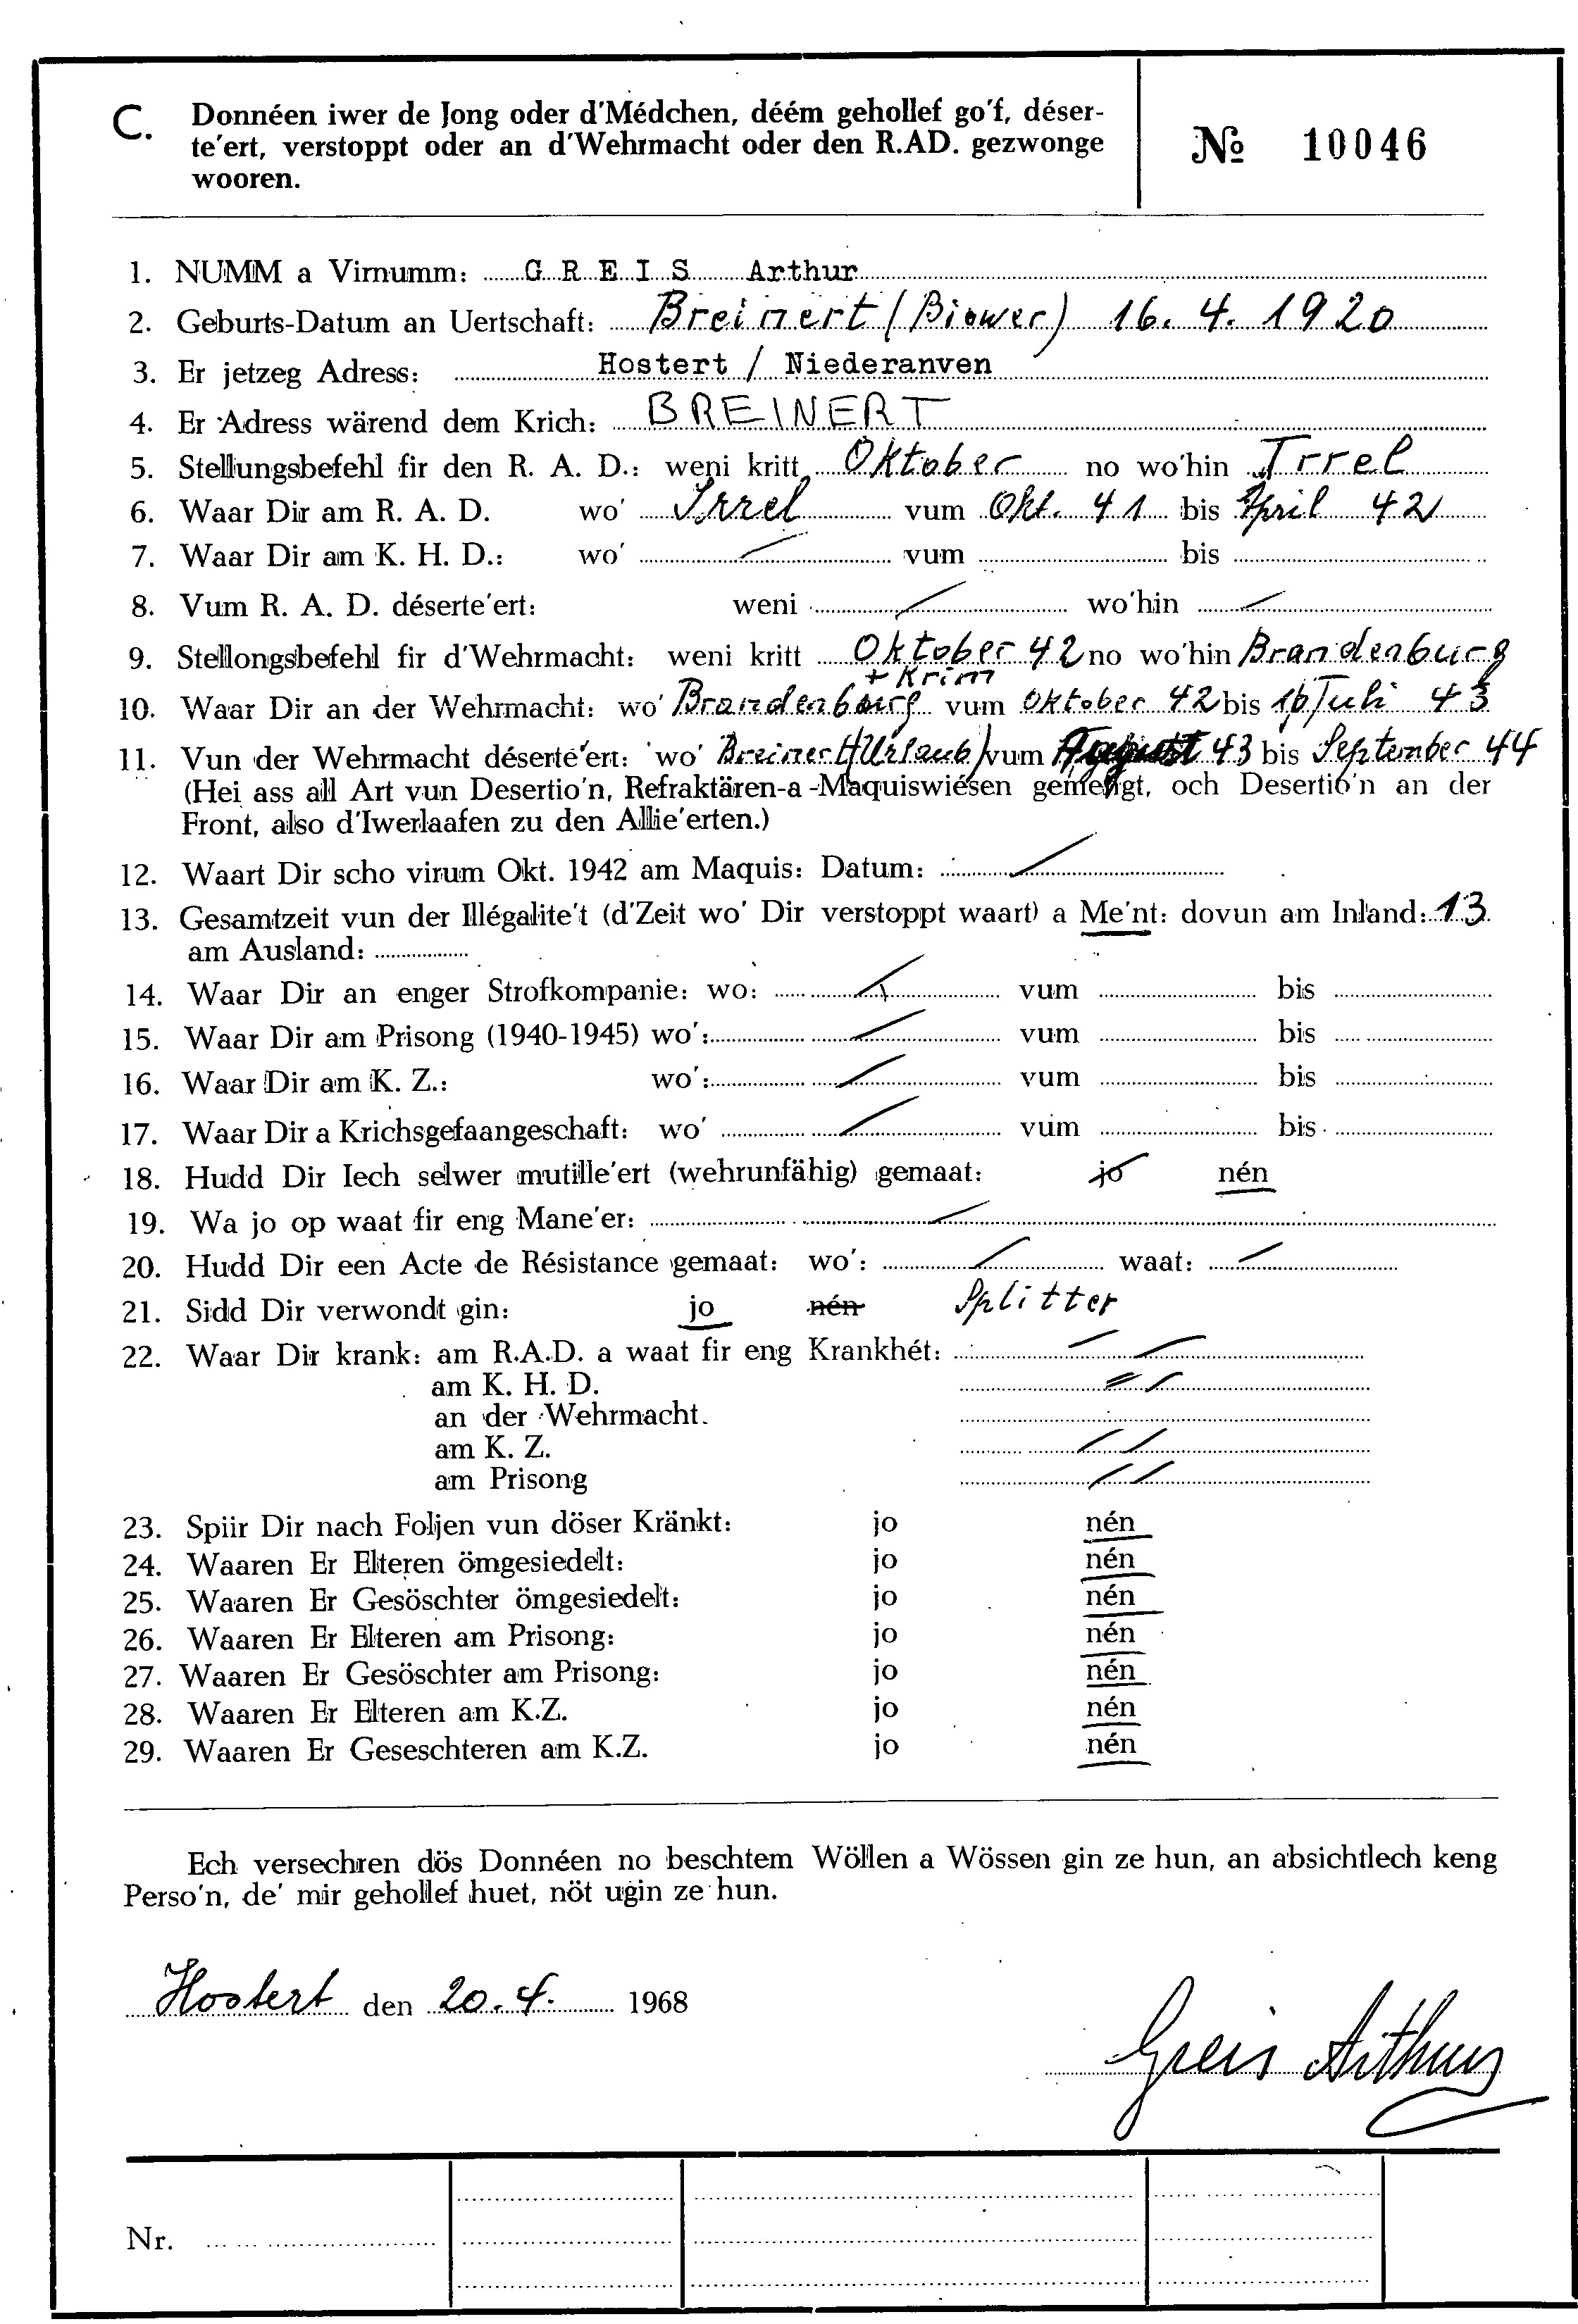 C. Donnéen iwer de Jong oder d'Médchen, déém gehollef go'f, déser-
te'ert, verstoppt oder an d'Wehrmacht oder den R.AD. gezwonge
wooren.
№ 10046
1. NUMM a Virnumm: GREIS Arthur
2. Geburts-Datum an Uertschaft: Breinert (Biower) 16. 4. 1920
3. Er jetzeg Adress: Hostert / Niederanven
4. Er Adress wärend dem Krich: BREINERT
5. Stellungsbefehl fir den R. A. D.: weni kritt Oktober no wo'hin Irrel
6. Waar Dir am R. A. D. wo' Irrel vum Okt. 41 bis April 42
7. Waar Dir am K. H. D.: wo' vum bis
8. Vum R. A. D. déserte'ert: weni wo'hin
9. Stellongsbefehl fir d'Wehrmacht: weni kritt Oktober 42 no wo'hin Brandenburg
+ Krim
10. Waar Dir an der Wehrmacht: wo' Brandenburg vum Oktober 42 bis 16 Juli 43
11. Vun der Wehrmacht déserte'ert: wo' Breinert (Urlaub) vum August 43 bis September 44
(Hei ass all Art vun Desertio'n, Refraktären-a -Maquiswiésen gemengt, och Desertio'n an der
Front, also d'Iwerlaafen zu den Allie'erten.)
12. Waart Dir scho virum Okt. 1942 am Maquis: Datum:
13. Gesamtzeit vun der Illégalite't (d'Zeit wo' Dir verstoppt waart) a Me'nt: dovun am Inland: 13
am Ausland:
14. Waar Dir an enger Strofkompanie: wo: vum bis
15. Waar Dir am Prisong (1940-1945) wo': vum bis
16. Waar Dir am K. Z.: wo': vum bis
17. Waar Dir a Krichsgefaangeschaft: wo' vum bis
18. Hudd Dir Iech selwer mutille'ert (wehrunfähig) gemaat: jo nén
19. Wa jo op waat fir eng Mane'er:
20. Hudd Dir een Acte de Résistance gemaat: wo': waat:
21. Sidd Dir verwondt gin: jo nén Splitter
22. Waar Dir krank: am R.A.D. a waat fir eng Krankhét:
am K. H. D.
an der Wehrmacht.
am K. Z.
am Prisong
23. Spiir Dir nach Foljen vun döser Kränkt: jo nén
24. Waaren Er Elteren ömgesiedelt: jo nén
25. Waaren Er Gesöschter ömgesiedelt: jo nén
26. Waaren Er Elteren am Prisong: jo nén
27. Waaren Er Gesöschter am Prisong: jo nén
28. Waaren Er Elteren am K.Z. jo nén
29. Waaren Er Geseschteren am K.Z. jo nén
Ech versechren dös Donnéen no beschtem Wöllen a Wössen gin ze hun, an absichtlech keng
Perso'n, de' mir gehollef huet, nöt ugin ze hun.
Hostert den 20. 4. 1968
Greis Arthur
Nr.